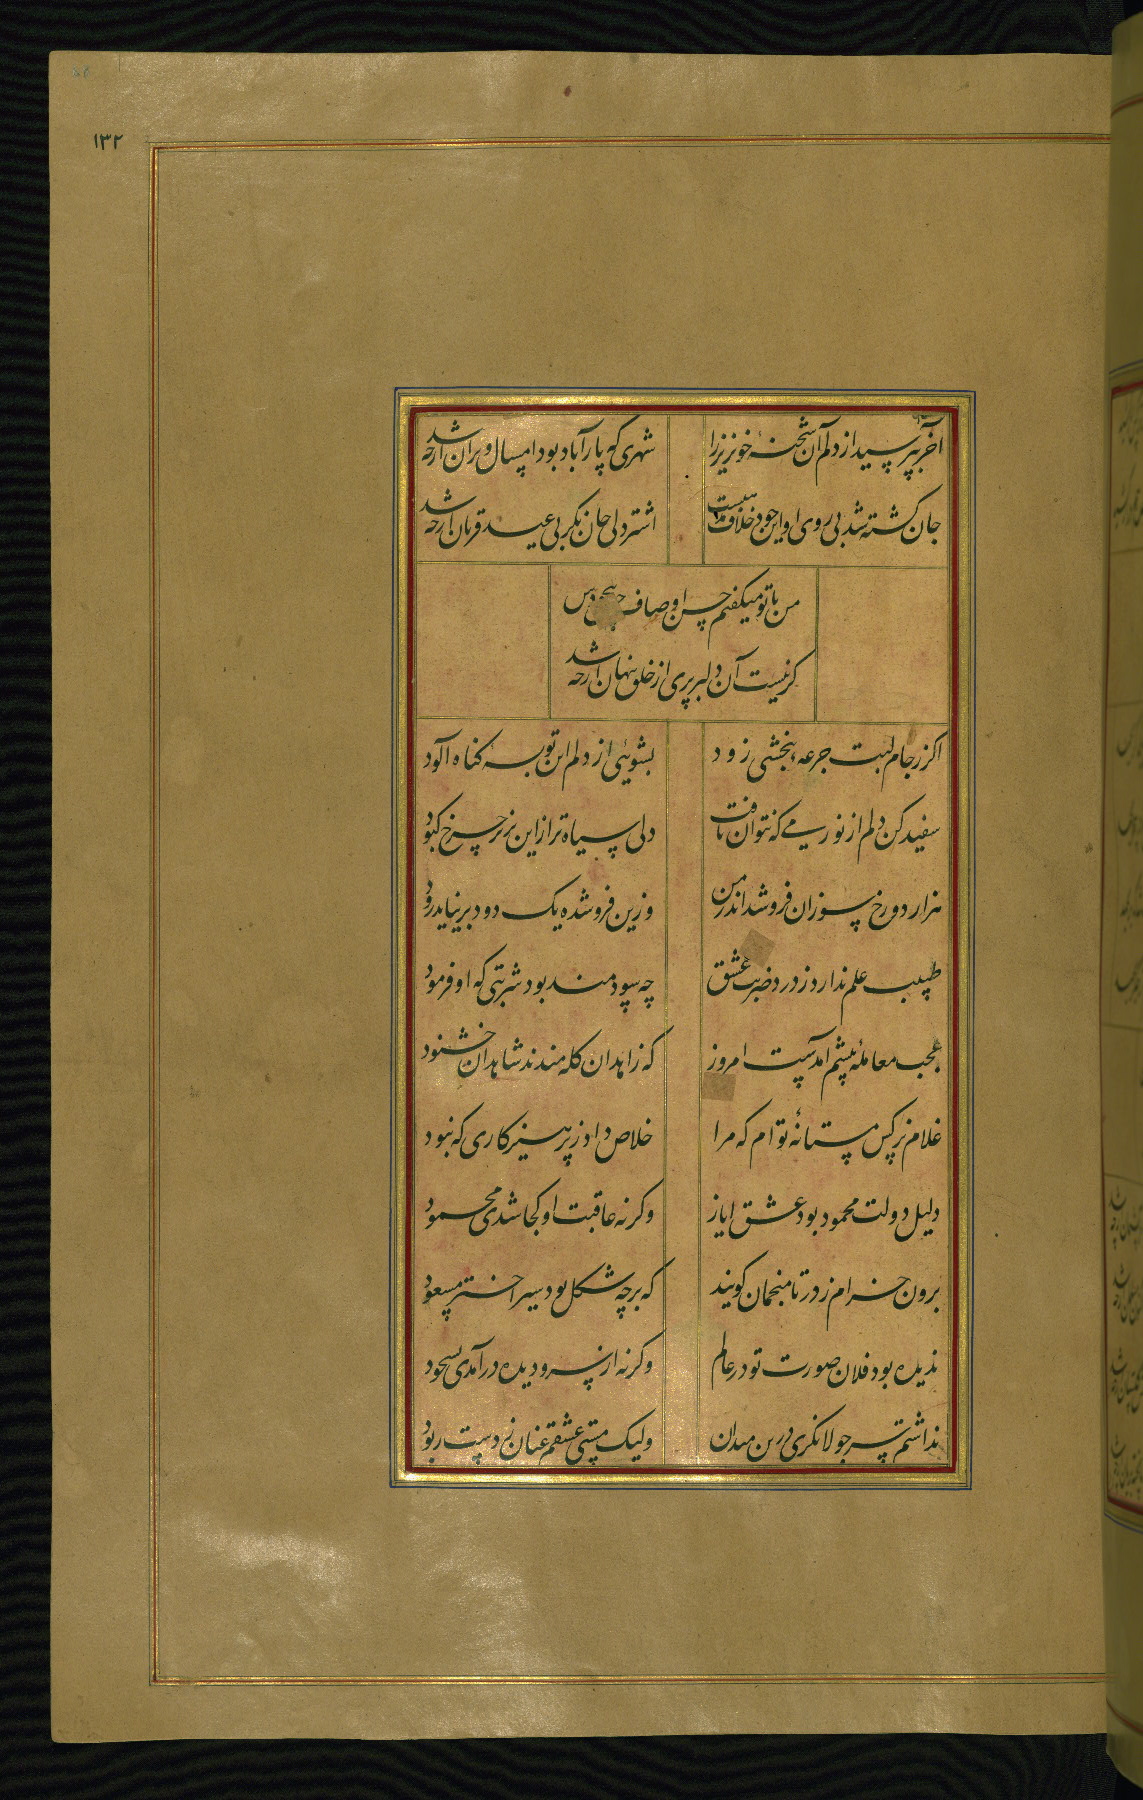 ۱۳۲
آخر بپرسید از دلم آن شحنهٔ خونریز را شهری که پار آباد بود امسال ویران از چه شد
جان کشته شد بی روی او این خود خلاف نیست اشتر دلی جان بکر بی عید قربان از چه شد
من با تو میکفتم حسن اوصاف
کر نیست آن دلبر پری از خلق پنهان از چه شد
اکر ز جام لبت جرعهٔ ببخشی زود بشوئی از دلم این توبه کناه آلود
سفید کن دلم از نور می که نتوان یافت دلی سیاه تر از این زیر چرخ کبود
هزار دوزخ سوزان فرو شد اندر من وزین فرو شده یک دود بر نیاید زود
طبیب علم ندارد ز درد ضربت عشق چه سودمند بود شربتی که او فرمود
عجب معاملهٔ پیشم آمدست امروز که زاهدان کله مندند شاهدان خشنود
غلام نرکس مستانهٔ توام که مرا خلاص داد ز پرهیزکاری که نبود
دلیل دولت محمود بود عشق ایاز وکرنه عاقبت او کجا شدی محمود
برون خرام ز در تا منجمان کویند که بر چه شکل بود سیر اختر مسعود
ندیده بود فلان صورت تو در عالم وکرنه از سر و دیده در آمدی بسجود
نداشتم سر جولانکری درین میدان ولیک مستی عشقم عنان ز دست ربود